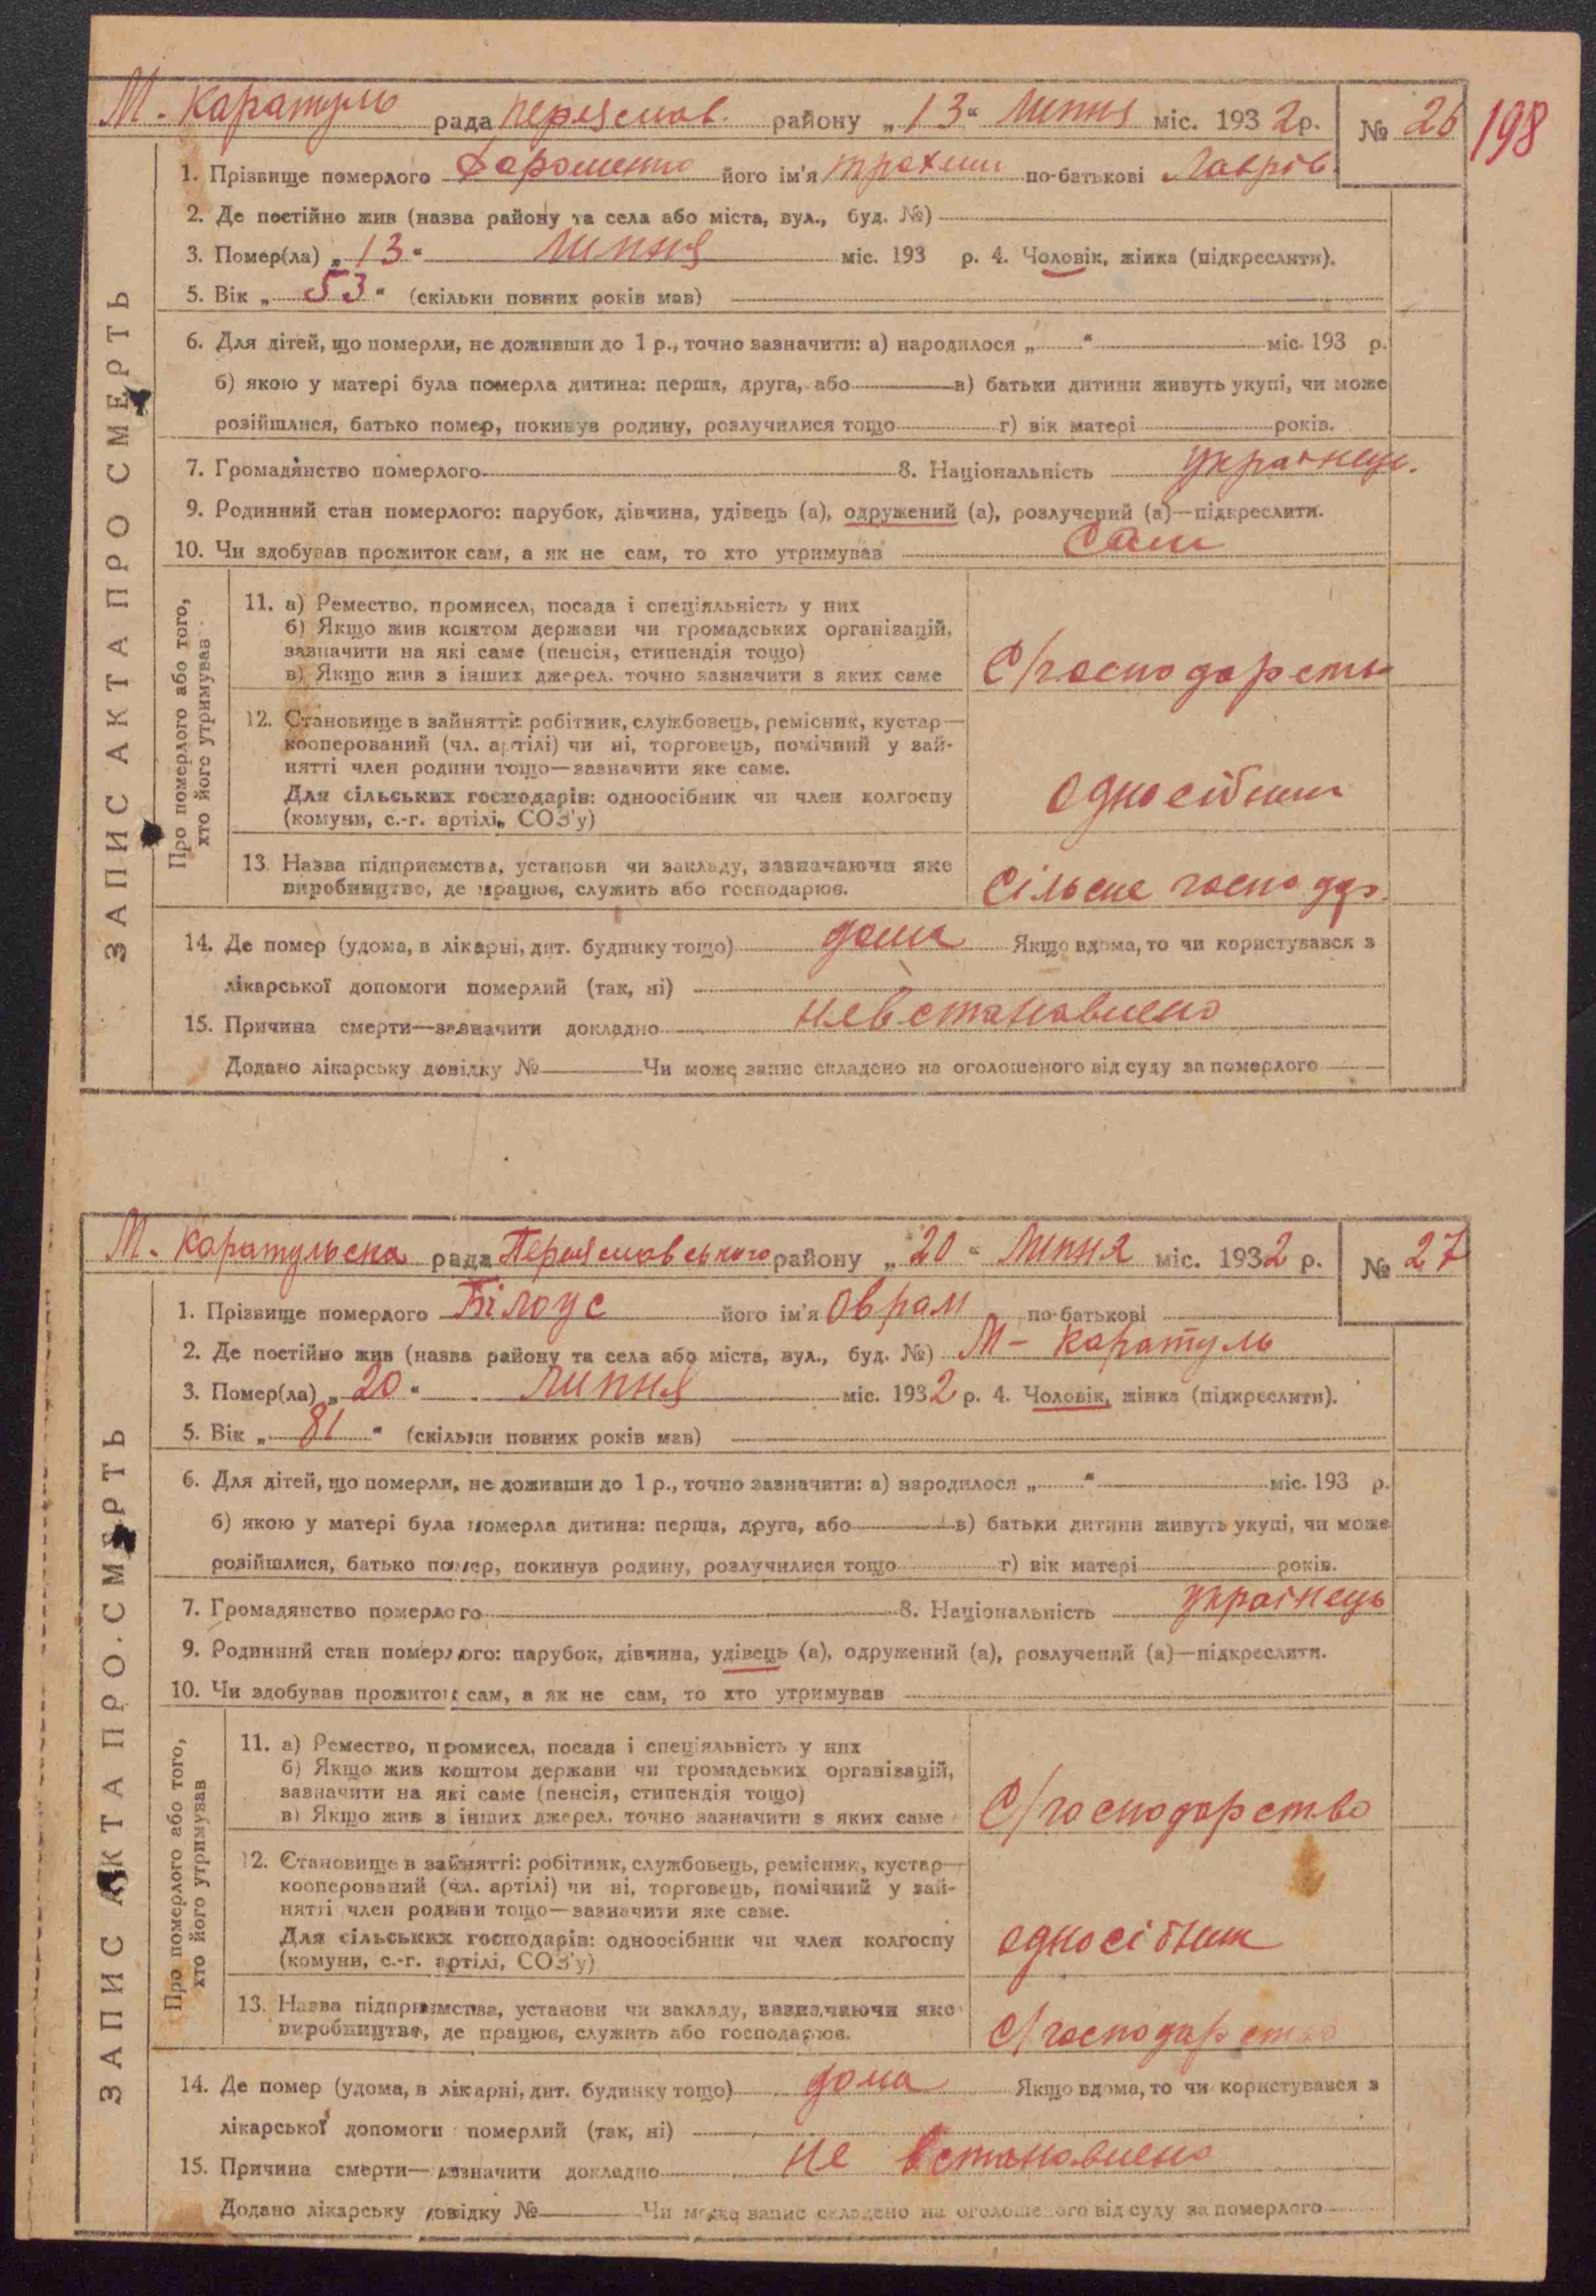 М. Каратуль рада Переяслов. району „13“ Липня міс. 1932 р. № 26
198
1. Прізвище померлого його ім'я Трахим по-батькові Лавров.
2. Де постійно жив (назва району та села або міста, вул., буд. №)
3. Помер(ла) „13“ Липня міс. 193 р. 4. Чоловік, жінка (підкреслити).
5. Вік „53“ (скільки повних років мав)
6. Для дітей, що померли, не доживши до 1 р., точно зазначити: а) народилося „ “ міс. 193 р.
б) якою у матері була померла дитина: перша, друга, або в) батьки дитини живуть укупі, чи може
розійшлися, батько помер, покинув родину, розлучилися тощо г) вік матері років.
7. Громадянство померлого 8. Національність українець.
9. Родинний стан померлого: парубок, дівчина, удівець (а), одружений (а), розлучений (а)—підкреслити.
10. Чи здобував прожиток сам, а як не сам, то хто утримував Сам
ЗАПИС АКТА ПРО СМЕРТЬ
Про померлого або того,
хто його утримував
11. а) Ремество, промисел, посада і спеціяльність у них
б) Якщо жив коштом держави чи громадських організацій,
зазначити на які саме (пенсія, стипендія тощо)
в) Якщо жив з інших джерел, точно зазначити з яких саме
С/господарство
12. Становище в зайнятті: робітник, службовець, ремісник, кустар—
кооперований (чл. артілі) чи ні, торговець, помічний у зай-
нятті член родини тощо—зазначити яке саме.
Для сільських господарів: одноосібник чи член колгоспу
(комуни, с.-г. артілі, СОЗ'у)
односібник
13. Назва підприємства, установи чи закладу, зазначаючи яке
виробництво, де працює, служить або господарює.
Сільске господар.
14. Де помер (удома, в лікарні, дит. будинку тощо) дома Якщо вдома, то чи користувався з
лікарської допомоги померлий (так, ні)
15. Причина смерти—зазначити докладно невстановлено
Додано лікарську довідку № Чи може запис складено на оголошеного від суду за померлого
М. Каратульска рада Переяславського району „20“ Липня міс. 1932 р. № 27
1. Прізвище померлого Білоус його ім'я Оврам по-батькові
2. Де постійно жив (назва району та села або міста, вул., буд. №) М - Каратуль
3. Помер(ла) „20“ Липня міс. 1932 р. 4. Чоловік, жінка (підкреслити).
5. Вік „81“ (скільки повних років мав)
6. Для дітей, що померли, не доживши до 1 р., точно зазначити: а) народилося „ “ міс. 193 р.
б) якою у матері була померла дитина: перша, друга, або в) батьки дитини живуть укупі, чи може
розійшлися, батько помер, покинув родину, розлучилися тощо г) вік матері років.
7. Громадянство померлого 8. Національність українець
9. Родинний стан померлого: парубок, дівчина, удівець (а), одружений (а), розлучений (а)—підкреслити.
10. Чи здобував прожиток сам, а як не сам, то хто утримував
ЗАПИС АКТА ПРО СМЕРТЬ
Про померлого або того,
хто його утримував
11. а) Ремество, промисел, посада і спеціяльність у них
б) Якщо жив коштом держави чи громадських організацій,
зазначити на які саме (пенсія, стипендія тощо)
в) Якщо жив з інших джерел, точно зазначити з яких саме
С/господарство
12. Становище в зайнятті: робітник, службовець, ремісник, кустар—
кооперований (чл. артілі) чи ні, торговець, помічний у зай-
нятті член родини тощо—зазначити яке саме.
Для сільських господарів: одноосібник чи член колгоспу
(комуни, с.-г. артілі, СОЗ'у)
односібник
13. Назва підприємства, установи чи закладу, зазначаючи яке
виробництво, де працює, служить або господарює.
С/господарство
14. Де помер (удома, в лікарні, дит. будинку тощо) дома Якщо вдома, то чи користувався з
лікарської допомоги померлий (так, ні)
15. Причина смерти—зазначити докладно не встановлено
Додано лікарську довідку № Чи може запис складено на оголошеного від суду за померлого